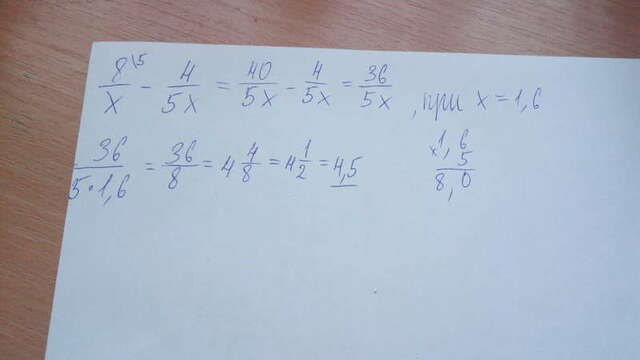 8\5/x - 4/5x = 40/5x - 4/5x = 36/5x , при x = 1,6
36/5•1,6 = 36/8 = 4 4/8 = 4 1/2 = 4,5
×1,6
5
8,0